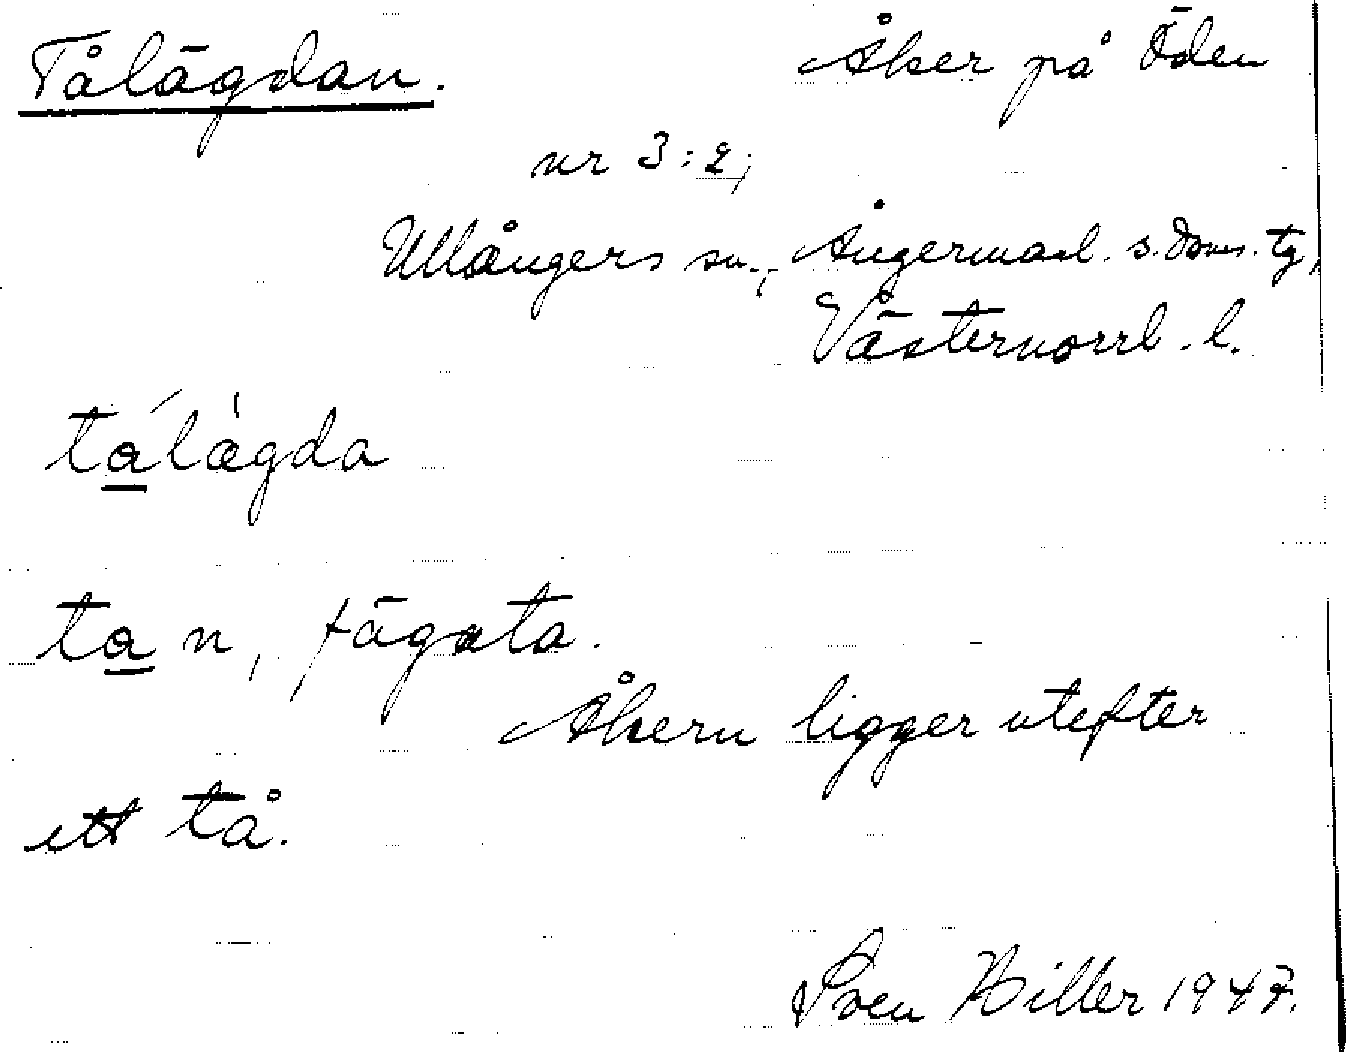 Tålägdan. Åker på Öden
nr 3:2,
Ullångers sn., Ångermanl. s. doms. tg,
Västernorrl. l.
ta̲lägda
ta̲ n, fägata.
Åkern ligger utefter
ett tå.
Sven Hiller 1947.